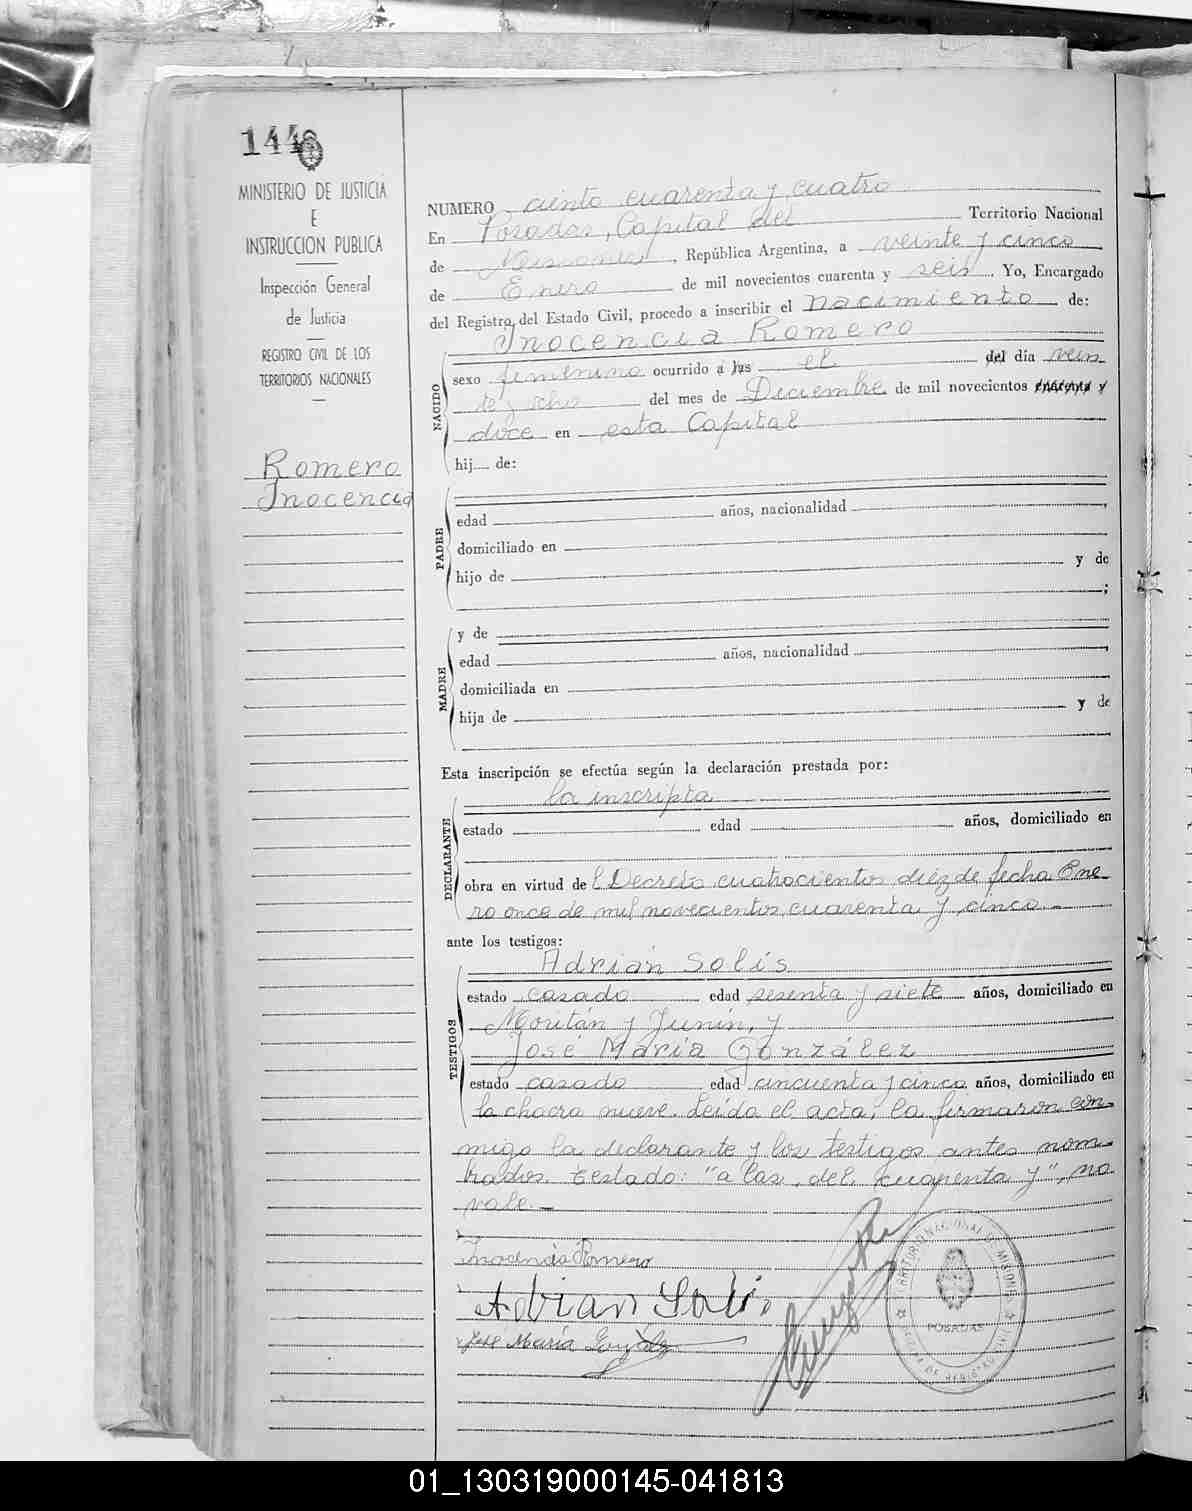 144
MINISTERIO DE JUSTICIA
E
INSTRUCCION PUBLICA
Inspección General
de Justicia
REGISTRO CIVIL DE LOS
TERRITORIOS NACIONALES
Romero
Inocencia
NUMERO ciento cuarenta y cuatro
En Posadas, Capital del Territorio Nacional
de Misiones, República Argentina, a veinte y cinco
de Enero de mil novecientos cuarenta y seis. Yo, Encargado
del Registro del Estado Civil, procedo a inscribir el nacimiento de:
Inocencia Romero
NACIDO
sexo femenino ocurrido a las el del día vein
te y ocho del mes de Diciembre de mil novecientos cuarenta y
doce en esta Capital
hij de:
PADRE
edad años, nacionalidad
domiciliado en
hijo de y de
;
MADRE
y de
edad años, nacionalidad
domiciliada en
hija de y de
Esta inscripción se efectúa según la declaración prestada por:
la inscripta
DECLARANTE
estado edad años, domiciliado en
obra en virtud del Decreto cuatrocientos diez de fecha Ene-
ro once de mil novecientos cuarenta y cinco.-
ante los testigos:
Adrián Solís
TESTIGOS
estado casado edad sesenta y siete años, domiciliado en
Moritán y Junín, y
José María González
estado casado edad cincuenta y cinco años, domiciliado en
la chacra nueve. Leída el acta, la firmaron con-
migo la declarante y los testigos antes nom-
brados. Testado: "a las, del, cuarenta y", no
vale.-
Inocencia Romero
Adrian Solis
José María González
POSADAS
01_130319000145-041813